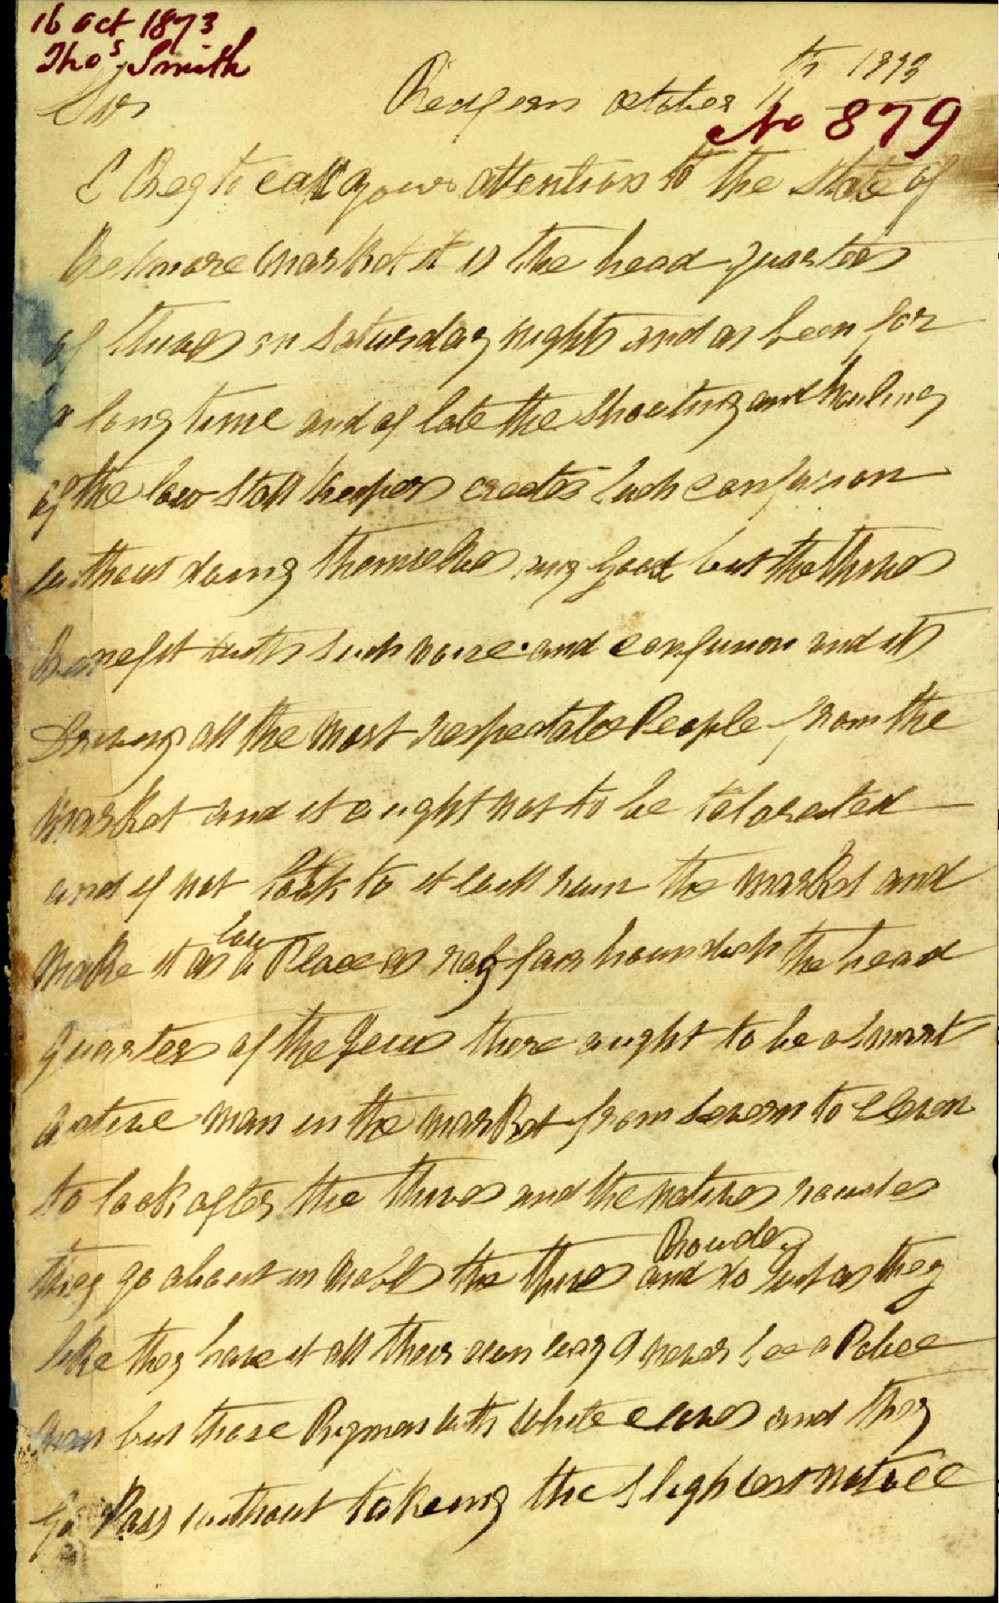 16 Oct 1873
Thos Smith
Sir
Redfern October 11th 1873
No 879
I Beg to call your attention to the State of
Belmore Market it is the head quarters
of thives on Saturday nights and as been for
a long time and of late the Shouting and howling
of the low Stall keepers creates such confusion
without doing themselves any good but the thives
benefit with such noise and confusion and its
Driving all the most respectable People from the
market and it aught not to be tolorated
and if not look to it will ruin the market and
make it as low a Place as rag fair houndich the head
quarters of the Jews there aught to be a smart
active man in the market from Severn to Eleven
to look after the thives and the natives
they go about in mobs the thives and Rowdes do just as they
like they have it all their own way I never see a Police
man but those with white and they
Go Pass without takeing the Slightest notice